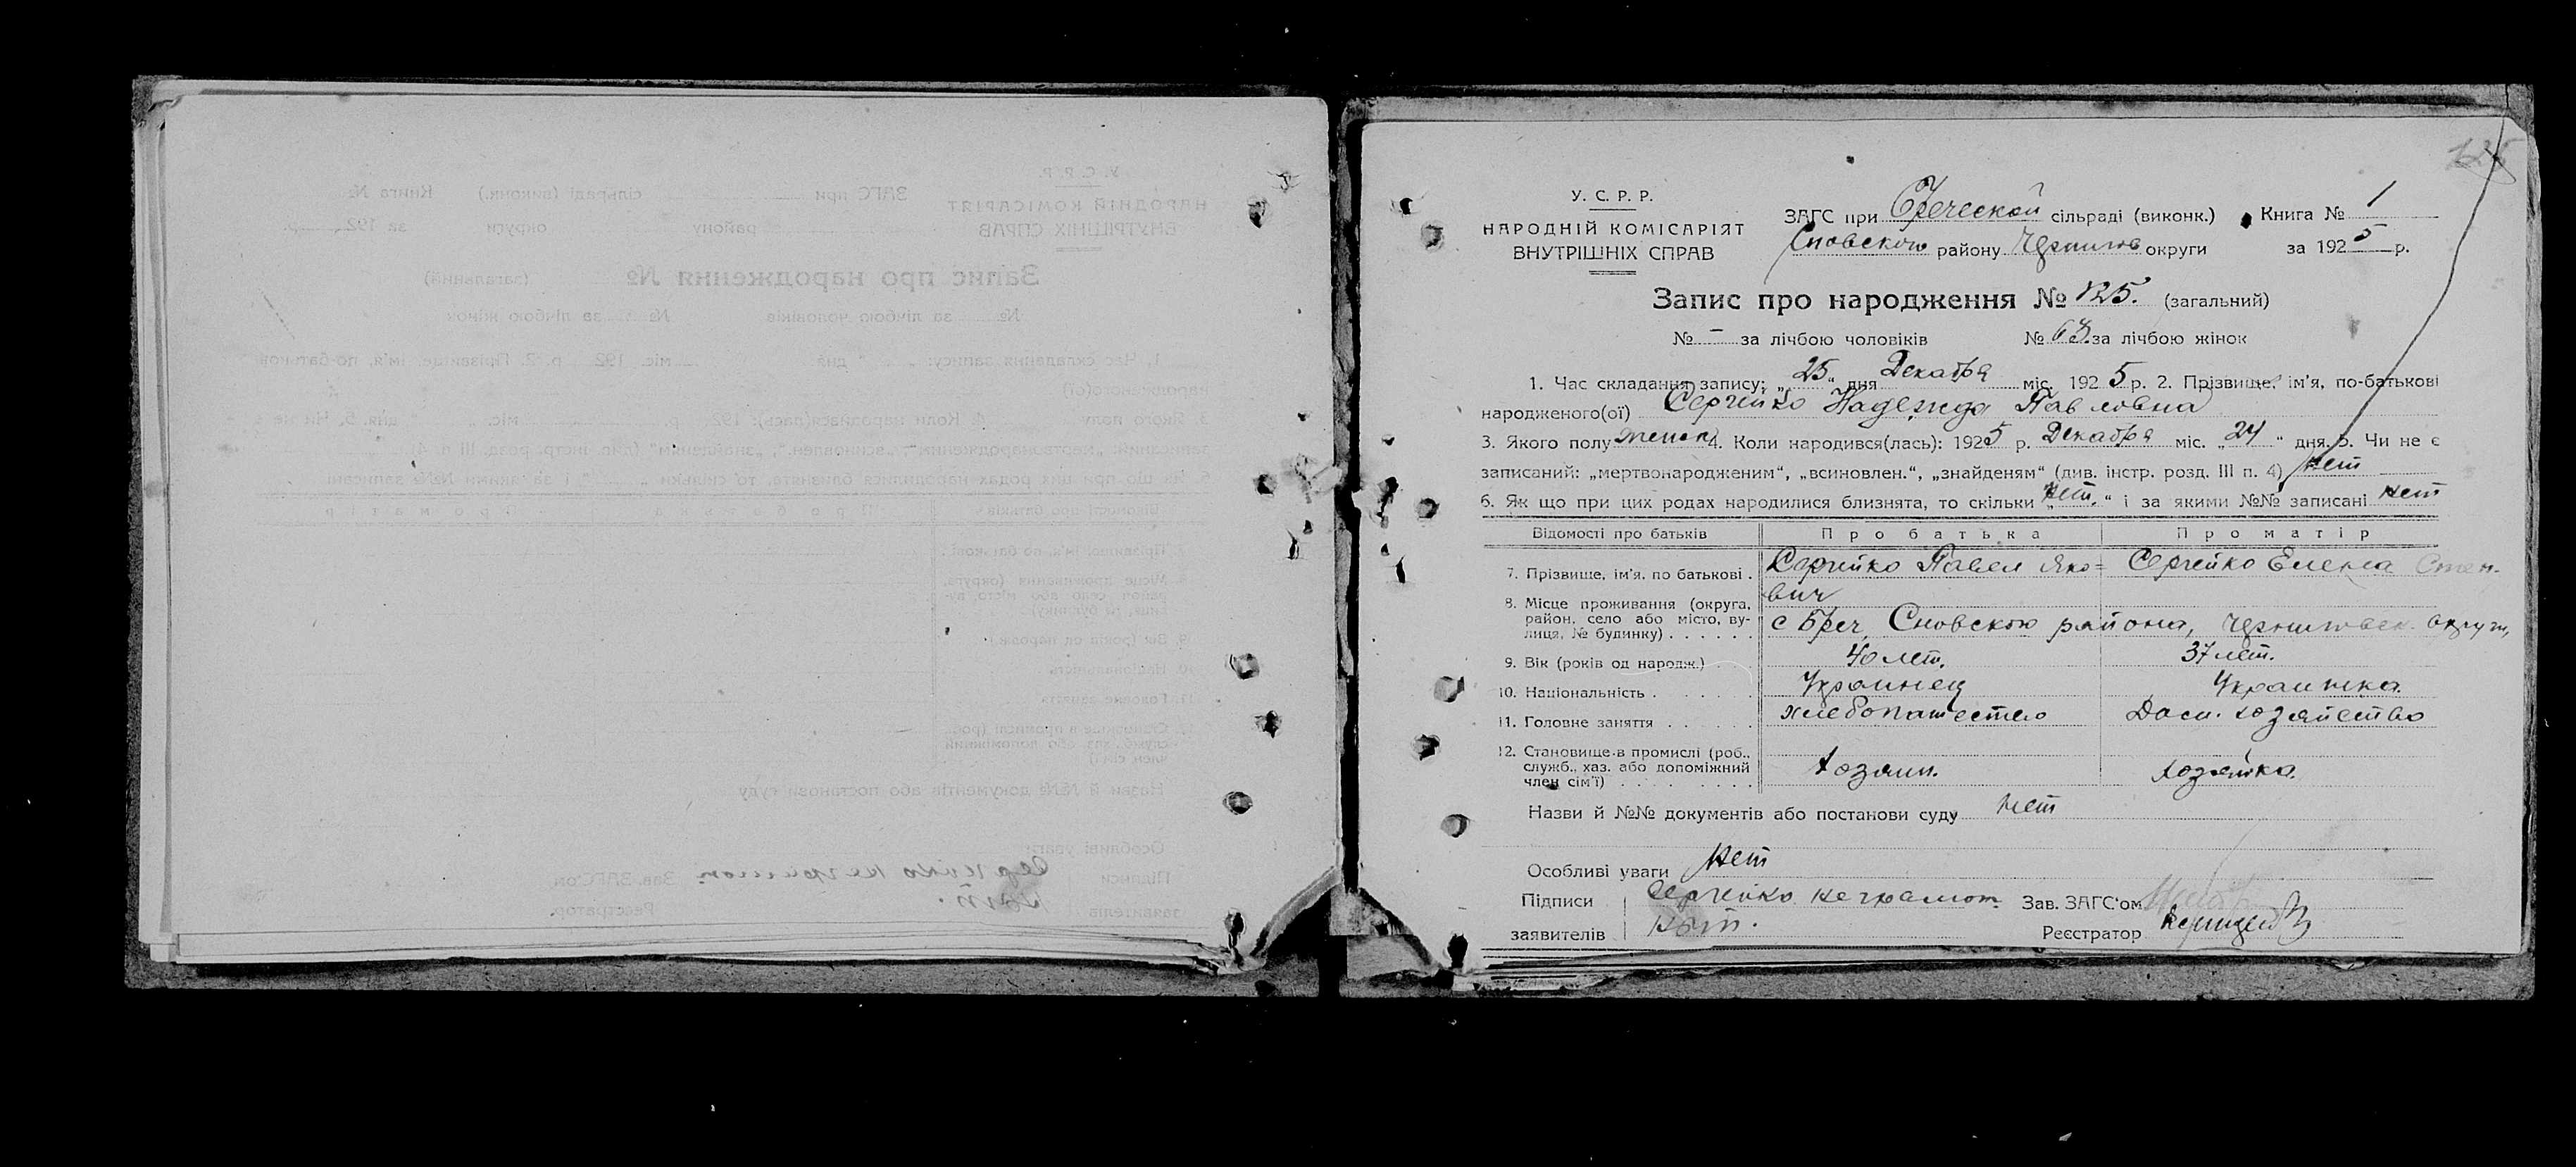 125
У. С. Р. Р.
НАРОДНІЙ КОМІСАРІЯТ
ВНУТРІШНІХ СПРАВ
ЗАГС при Бреческой сільраді (виконк.) Книга № 1
Сновского району Чернигов округи за 1925 р.
Запис про народження № 125. (загальний)
№ – за лічбою чоловіків № 63. за лічбою жінок
1. Час складання запису: „25“ дня Декабря міс. 1925 р. 2. Прізвище, ім'я, по-батькові
народженого(ої) Сергейко Надежда Павловна
3. Якого полу женск 4. Коли народився(лась): 1925 р. Декабря міс. „24“ дня. 5. Чи не є
записаний: „мертвонародженим“, „всиновлен.“, „знайденям“ (див. інстр. розд. III п. 4) нет
6. Як що при цих родах народилися близнята, то скільки „нет.“ і за якими №№ записані нет
Відомості про батьків Про батька Про матір
7. Прізвище, ім'я, по батькові . Сергейко Павел Яко=
вич Сергейко Елена Степ.
8. Місце проживання (округа, район, село або місто, вулиця, № будинку) . . . . . . с Бреч, Сновского района, Черниговск. округи,
9. Вік (років од народж.) 40 лет. 37 лет.
10. Національність . . . . . . Украинец Украинка.
11. Головне заняття . . . . . . хлебопашество Дом. хозяйство
12. Становище в промислі (роб., служб., хаз. або допоміжний член сім'ї) . . . . . . . . Хозяин. хозяйка.
Назви й №№ документів або постанови суду нет
Особливі уваги нет
Підписи Сергейко неграмот. Зав. ЗАГС'ом
заявителів Реєстратор